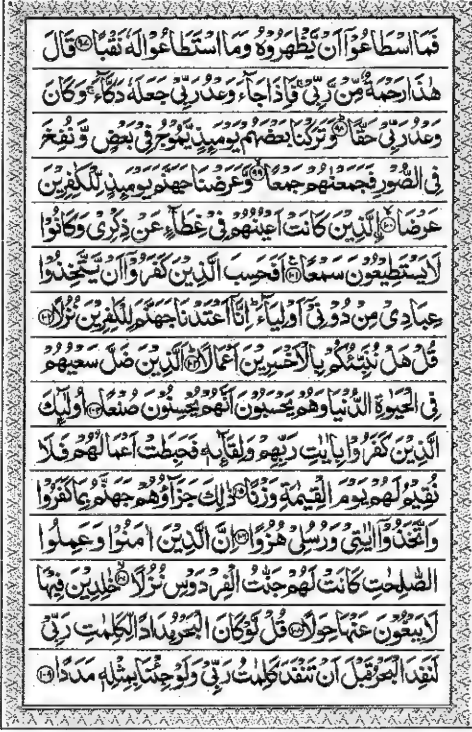 فَمَا اسْطَاعُوْٓا اَنْ يَّظْهَرُوْهُ وَمَا اسْتَطَاعُوْا لَهٗ نَقْبًا ﴿۹۷﴾ قَالَ
هٰذَا رَحْمَةٌ مِّنْ رَّبِّىْ ۚ فَاِذَا جَآءَ وَعْدُ رَبِّىْ جَعَلَهٗ دَكَّآءَ ۚ وَكَانَ
وَعْدُ رَبِّىْ حَقًّا ﴿۹۸﴾ وَتَرَكْنَا بَعْضَهُمْ يَوْمَئِذٍ يَّمُوْجُ فِىْ بَعْضٍ وَّنُفِخَ
فِى الصُّوْرِ فَجَمَعْنٰهُمْ جَمْعًا ﴿۹۹﴾ وَّعَرَضْنَا جَهَنَّمَ يَوْمَئِذٍ لِّلْكٰفِرِيْنَ
عَرْضَا ﴿۱۰۰﴾ الَّذِيْنَ كَانَتْ اَعْيُنُهُمْ فِىْ غِطَآءٍ عَنْ ذِكْرِىْ وَكَانُوْا
لَا يَسْتَطِيْعُوْنَ سَمْعًا ﴿۱۰۱﴾ اَفَحَسِبَ الَّذِيْنَ كَفَرُوْٓا اَنْ يَّتَّخِذُوْا
عِبَادِىْ مِنْ دُوْنِىْٓ اَوْلِيَآءَ ؕ اِنَّآ اَعْتَدْنَا جَهَنَّمَ لِلْكٰفِرِيْنَ نُزُلًا ﴿۱۰۲﴾
قُلْ هَلْ نُنَبِّئُكُمْ بِالْاَخْسَرِيْنَ اَعْمَالًا ﴿۱۰۳﴾ اَلَّذِيْنَ ضَلَّ سَعْيُهُمْ
فِى الْحَيٰوةِ الدُّنْيَا وَهُمْ يَحْسَبُوْنَ اَنَّهُمْ يُحْسِنُوْنَ صُنْعًا ﴿۱۰۴﴾ اُولٰٓئِكَ
الَّذِيْنَ كَفَرُوْا بِاٰيٰتِ رَبِّهِمْ وَلِقَآئِهٖ فَحَبِطَتْ اَعْمَالُهُمْ فَلَا
نُقِيْمُ لَهُمْ يَوْمَ الْقِيٰمَةِ وَزْنًا ﴿۱۰۵﴾ ذٰلِكَ جَزَآؤُهُمْ جَهَنَّمُ بِمَا كَفَرُوْا
وَاتَّخَذُوْٓا اٰيٰتِىْ وَرُسُلِىْ هُزُوًا ﴿۱۰۶﴾ اِنَّ الَّذِيْنَ اٰمَنُوْا وَعَمِلُوا
الصّٰلِحٰتِ كَانَتْ لَهُمْ جَنّٰتُ الْفِرْدَوْسِ نُزُلًا ﴿۱۰۷﴾ خٰلِدِيْنَ فِيْهَا
لَا يَبْغُوْنَ عَنْهَا حِوَلًا ﴿۱۰۸﴾ قُلْ لَّوْ كَانَ الْبَحْرُ مِدَادًا لِّكَلِمٰتِ رَبِّىْ
لَنَفِدَ الْبَحْرُ قَبْلَ اَنْ تَنْفَدَ كَلِمٰتُ رَبِّىْ وَلَوْ جِئْنَا بِمِثْلِهٖ مَدَدًا ﴿۱۰۹﴾